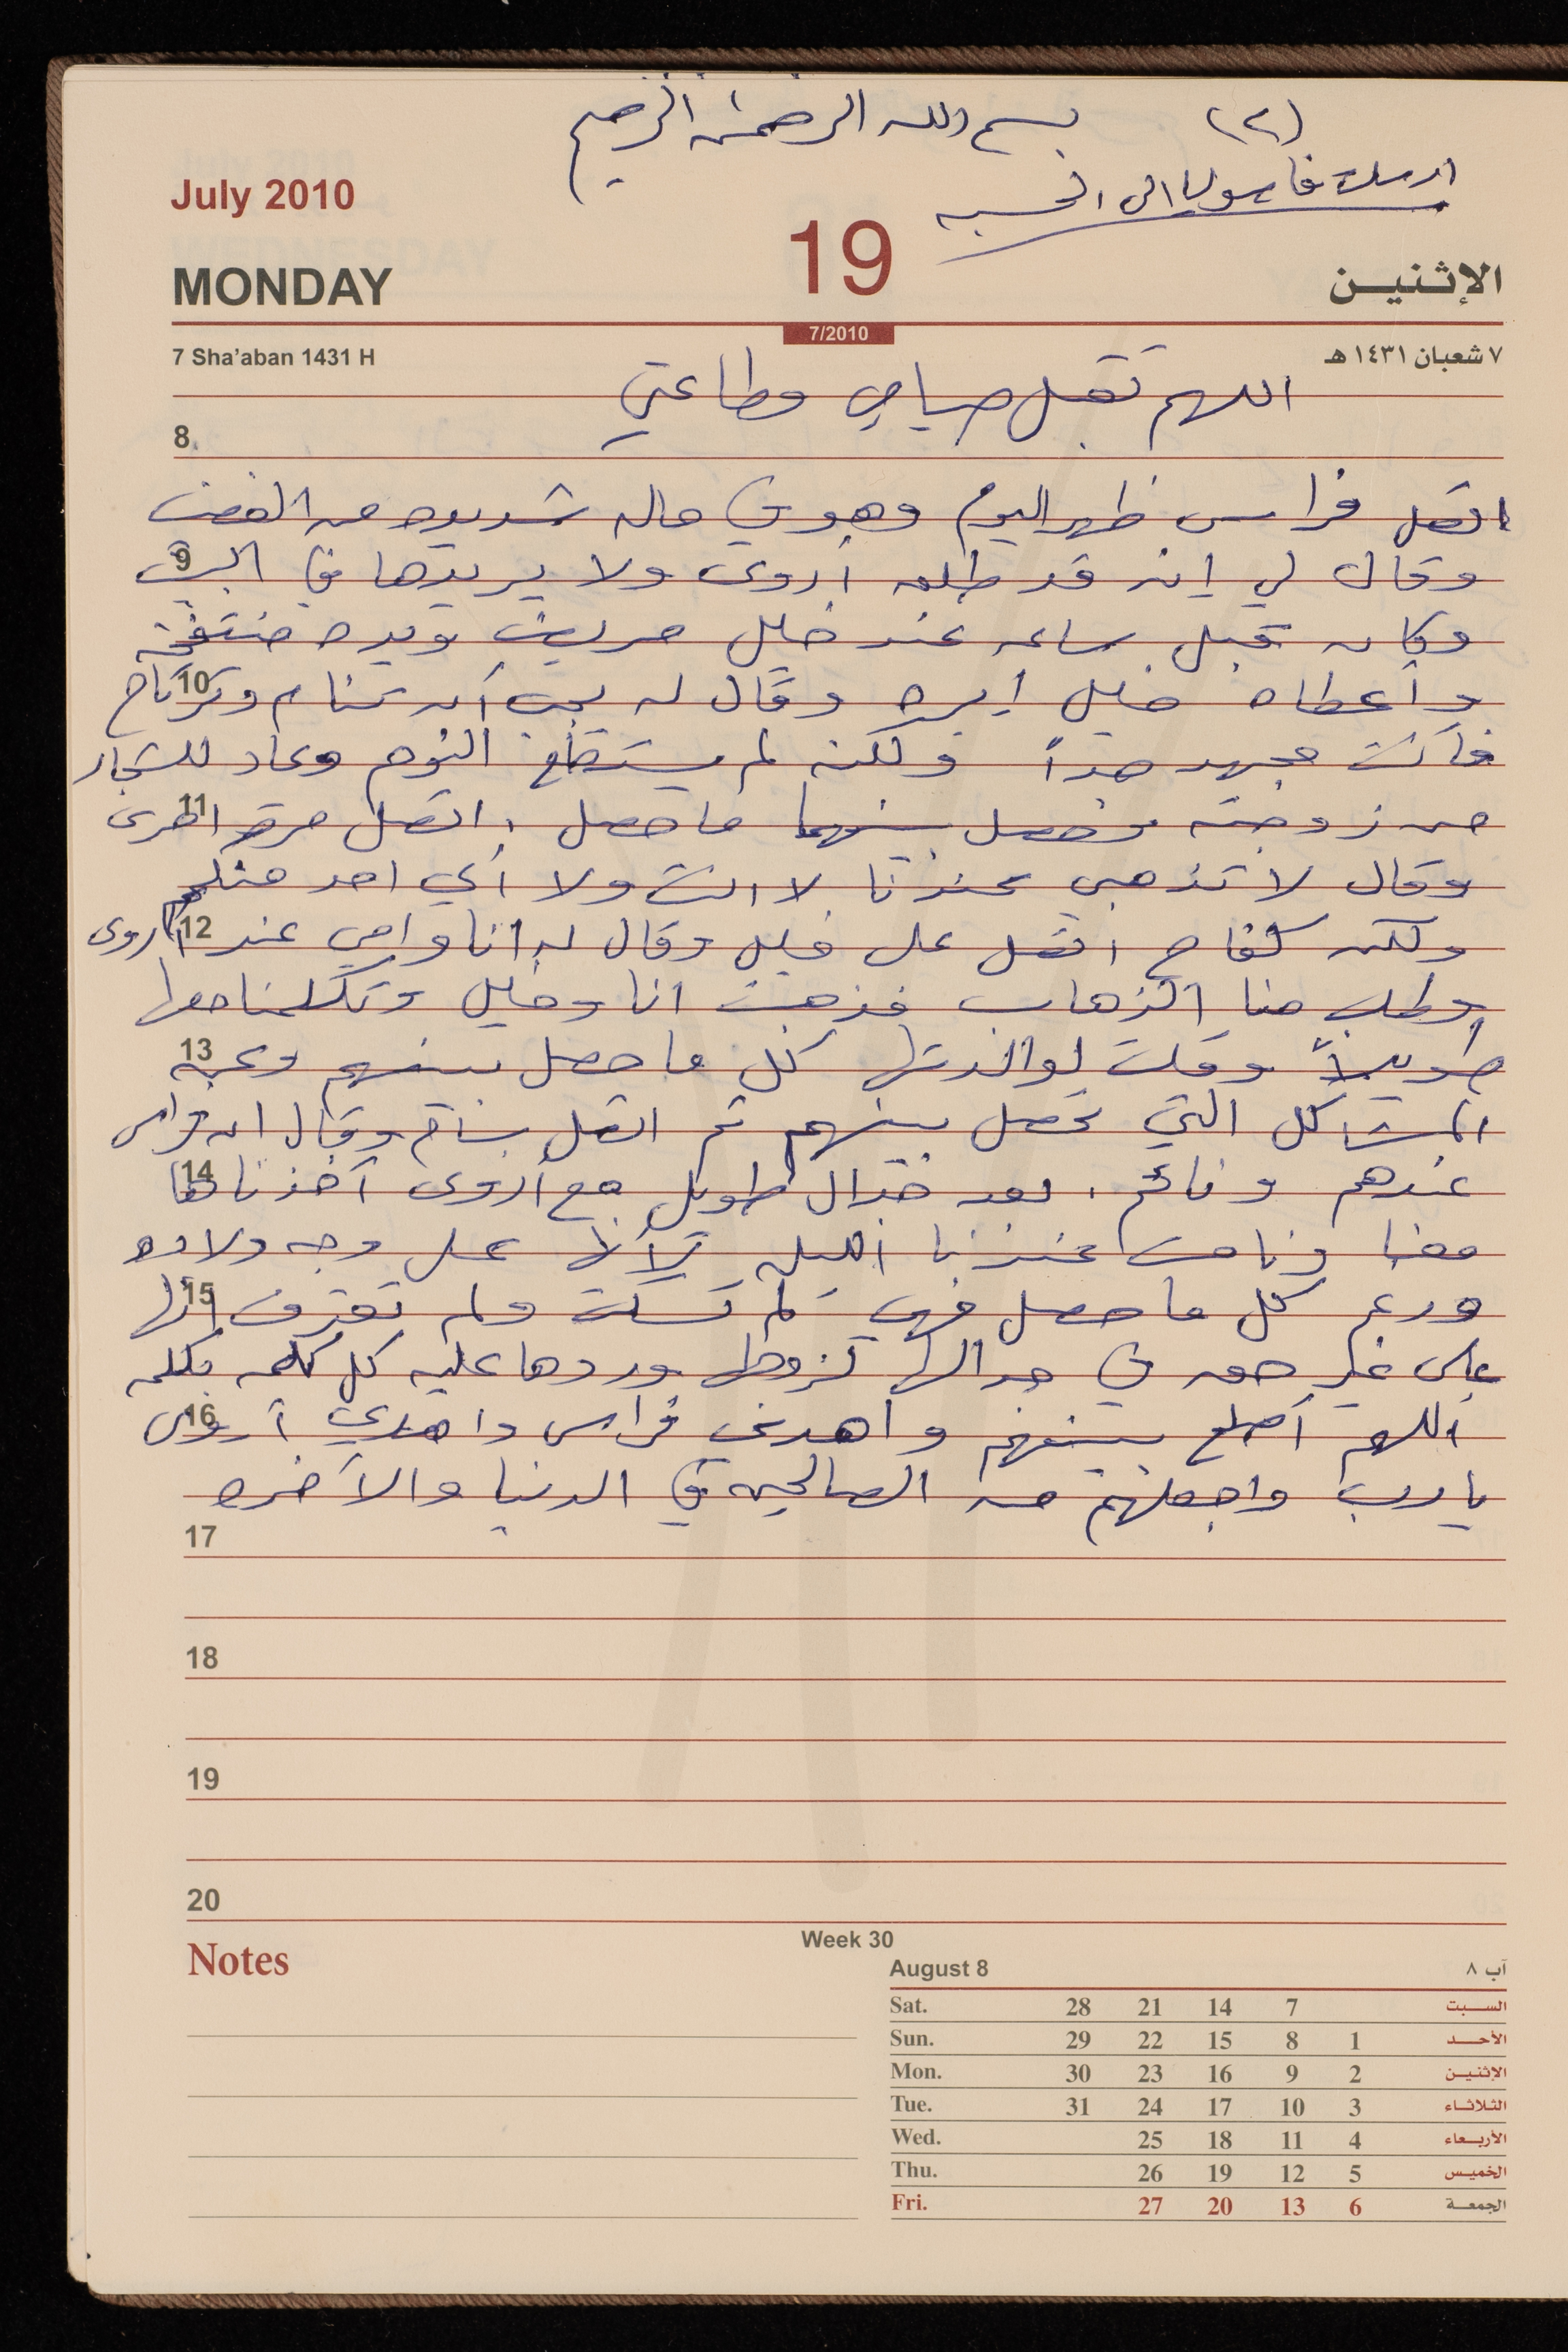 (٢) بسم الله الرحمن الرحيم
ارسلت فاصوليا الى الحسبه
July 2010
19
MONDAY
الإثنيـن
7/2010
7 Sha'aban 1431 H
٧ شعبان ١٤٣١ هـ
اللهم تقبل صيامي وطاعتي
8
اتصل فراس ظهر اليوم وهو في حاله شديده من الغضب
9
وقال لي إنه قد طلق أروى ولا يريدها في البيت
وكان قبل ساعه عند خليل مريض ويده منتفخة
10
وأعطاه خليل إبره وقال له يجب أن تنام وترتاح
فأنت مجهد جداً ولكنه لم يستطع النوم وعاد للشجار
11
من زوجته وحصل بينهما ما حصل . اتصل مرة اخرى
وقال لا تذهبي عندنا لا انت ولا أي احد منكم
12
ولكن كفاح اتصل على خليل وقال له انا وامي عند أروى
وطلب منا الذهاب فذهبت انا وخليل وتكلمنا معها
13
طويلاً وقلت لوالدتها كل ما حصل بينهم وعن
المشاكل التي تحصل بينهم ثم اتصل بسام وقال ان فراس
14
عندهم ونائم . بعد جدال طويل مع أروى أخذناها
معنا ونامت عندنا الليله لأنها على وجه ولاده
15
ورغم كل ما حصل فهي لم تسكت ولم تعترف انها
على غير حق في جدالها لزوجها وردها عليه كل كلمه بكلمه
16
اللهم أصلح بينهم واهدي فراس واهدي أروى
يا رب واجعلهم من الصالحين في الدنيا والآخره
17
18
19
20
Notes
Week 30
August 8
آب ٨
Sat. 28 21 14 7 السـبت
Sun. 29 22 15 8 1 الأحـد
Mon. 30 23 16 9 2 الإثنيـن
Tue. 31 24 17 10 3 الثـلاثـاء
Wed. 25 18 11 4 الأربـعاء
Thu. 26 19 12 5 الخميـس
Fri. 27 20 13 6 الجمعـة